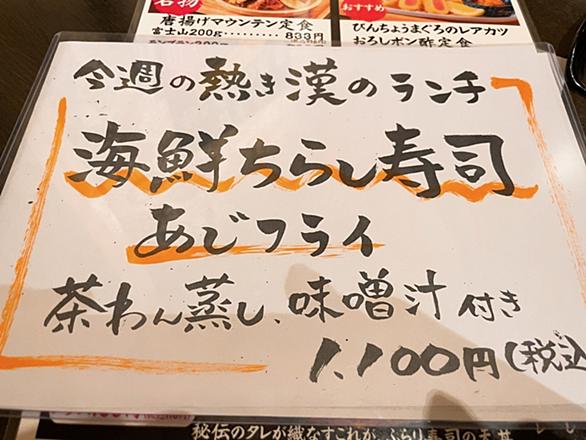 名物
唐揚げマウンテン定食
富士山200g………833円
おすすめ
びんちょうまぐろのレアカツ
おろしポン酢定食
今週の熱き漢のランチ
海鮮ちらし寿司
あじフライ
茶わん蒸し、味噌汁付き
1,100円(税込
秘伝のタレが織なすこれが、ぶらり寿司の天丼